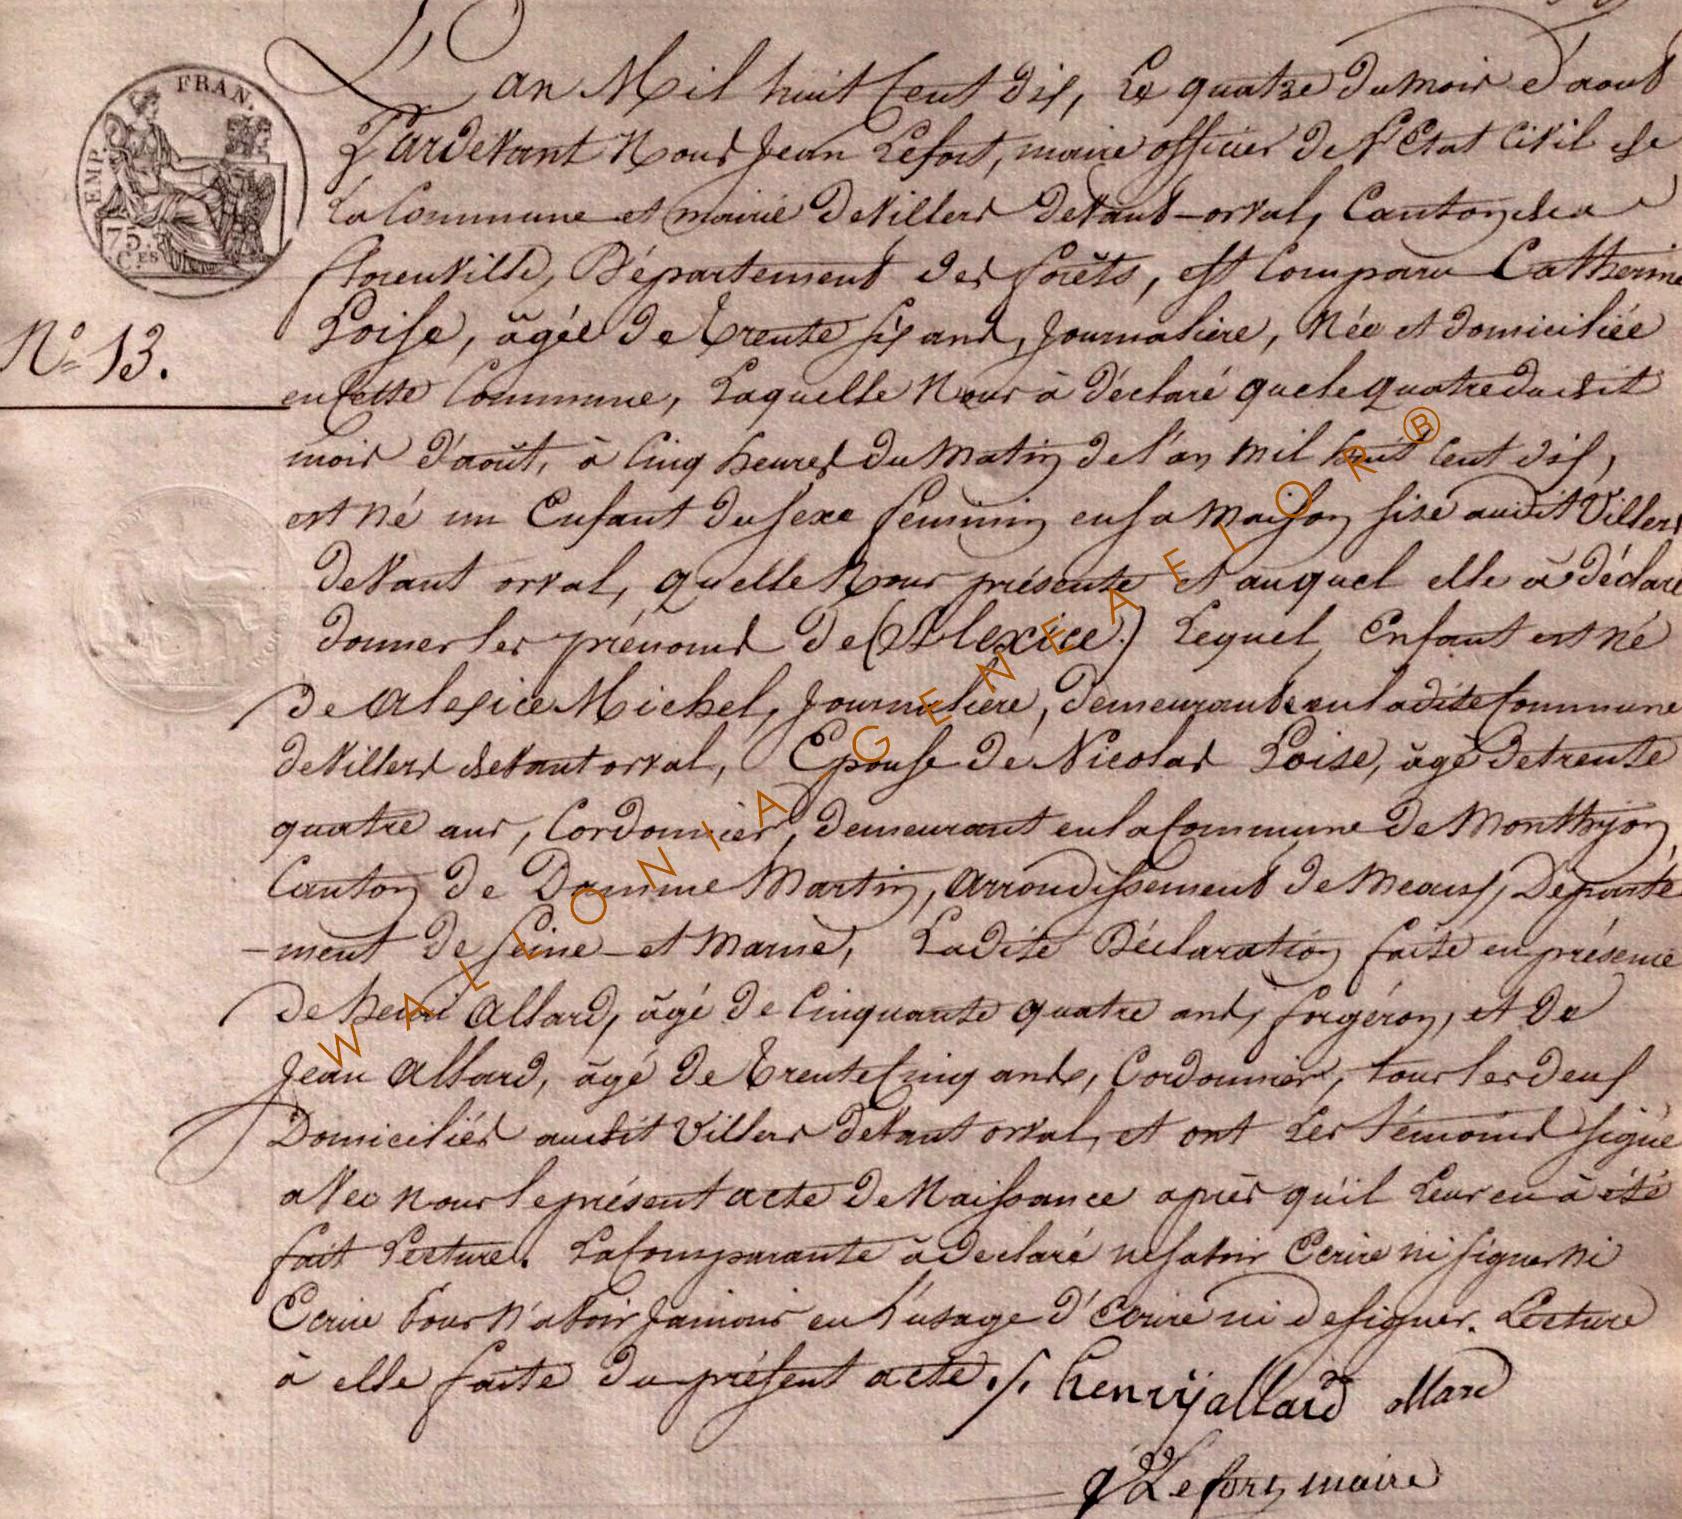 FRAN.
EMP.
75.
C.ES
L'an Mil huit Cent dix, Le quatre du mois d'aout
Pardevant Nous Jean Lefort, maire officier de l'Etat Civil de
La Commune et mairie de Villers devant-orval, Canton de
florenville, Département des forêts, est Comparu Catherine
Loise, âgée de trente six ans, Journalière, Née et domiciliée
N° 13.
en Cette Commune, Laquelle Nous à déclaré que le quatre du dit
mois d'août, à Cinq heures du Matin de l'an Mil huit Cent dix,
est né un Enfant du sexe féminin en sa Maison sise audit Villers
devant orval, qu'elle Nous présente et auquel elle à déclaré
donner les prénoms de (Alexice.) Lequel Enfant est né
de Alexice Michel, Journalière, demeurante en ladite Commune
de Villers devant orval, Epouse de Nicolas Loise, âgé de trente
quatre ans, Cordonnier, demeurant en la Commune de Monthyon,
Canton de Damme Martin, arrondissement de Meaux, Départe
-ment de Seine-et Marne, Ladite Déclaration faite en présence
de henri Allard, âgé de Cinquante quatre ans, forgéron, et de
Jean Allard, âgé de trente Cinq ans, Cordonnier, tous les deux
Domiciliés audit Villers devant orval, et ont Les témoins signé
avec nous le présent acte de Naissance après qu'il Leur en à été
fait Lecture. La Comparante à déclaré ne savoir Ecrire ni signer ni
Ecrire Pour N'avoir Jamais eu l'usage d'Ecrire ni de signer. Lecture
à elle faite du présent acte ./. henry allard allard
J Lefort maire
WALLONIA GENEAFLOR®